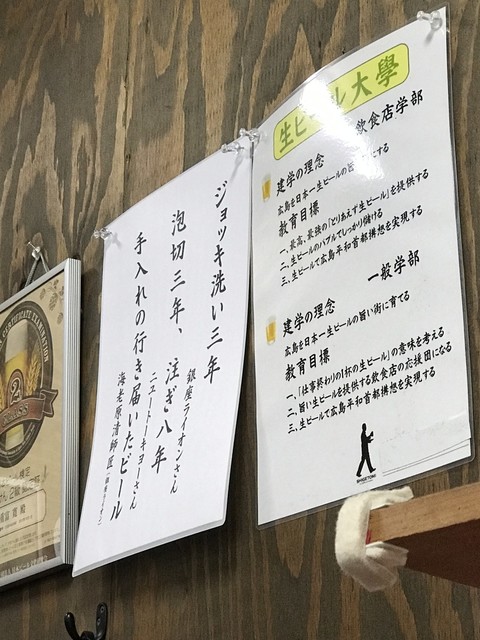 生ビール大學
飲食店学部
建学の理念
広島を日本一生ビールの旨い街にする
教育目標
一、最高、最強の「とりあえず生ビール」を提供する
二、生ビールのバブルでしっかり儲ける
三、生ビールで広島平和首都構想を実現する
一般学部
建学の理念
広島を日本一生ビールの旨い街に育てる
教育目標
一、「仕事終わりの1杯の生ビール」の意味を考える
二、旨い生ビールを提供する飲食店の応援団になる
三、生ビールで広島平和首都構想を実現する
SHIGETOMI
ジョッキ洗い三年
泡切三年、注ぎ八年
銀座ライオンさん
手入れの行き届いたビール
ニュートーキョーさん
海老原清師匠
CERTIFICATE EXAMINATION
2
CLASS